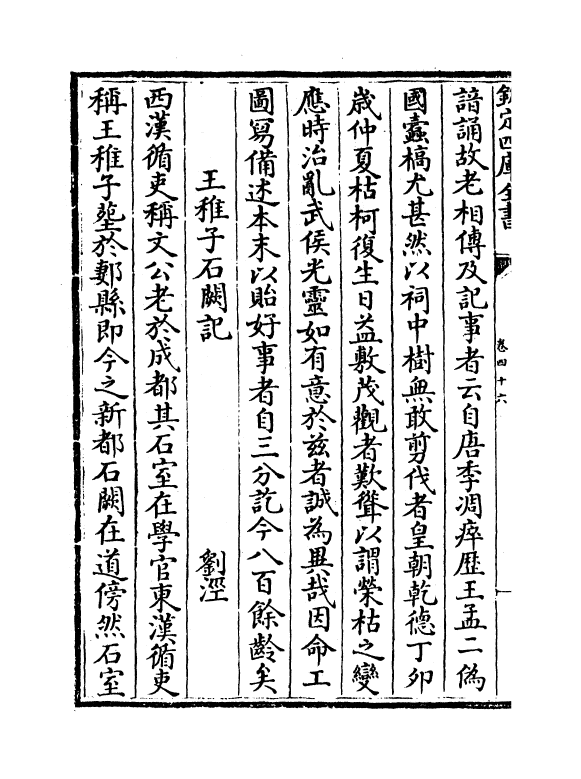 欽定四庫全書
卷四十六
諳誦故老相傳及記事者云自唐季凋瘁歴王孟二偽
國蠧槁尤甚然以祠中樹無敢剪伐者皇朝乾德丁卯
歳仲夏枯柯復生日益敷茂觀者歎聳以謂榮枯之變
應時治亂武侯光靈如有意於兹者誠為異哉因命工
圖冩備述本末以貽好事者自三分訖今八百餘齡矣
王稚子石闕記
劉涇
西漢循吏稱文公老於成都其石室在學官東漢循吏
稱王稚子塟於郪縣即今之新都石闕在道傍然石室